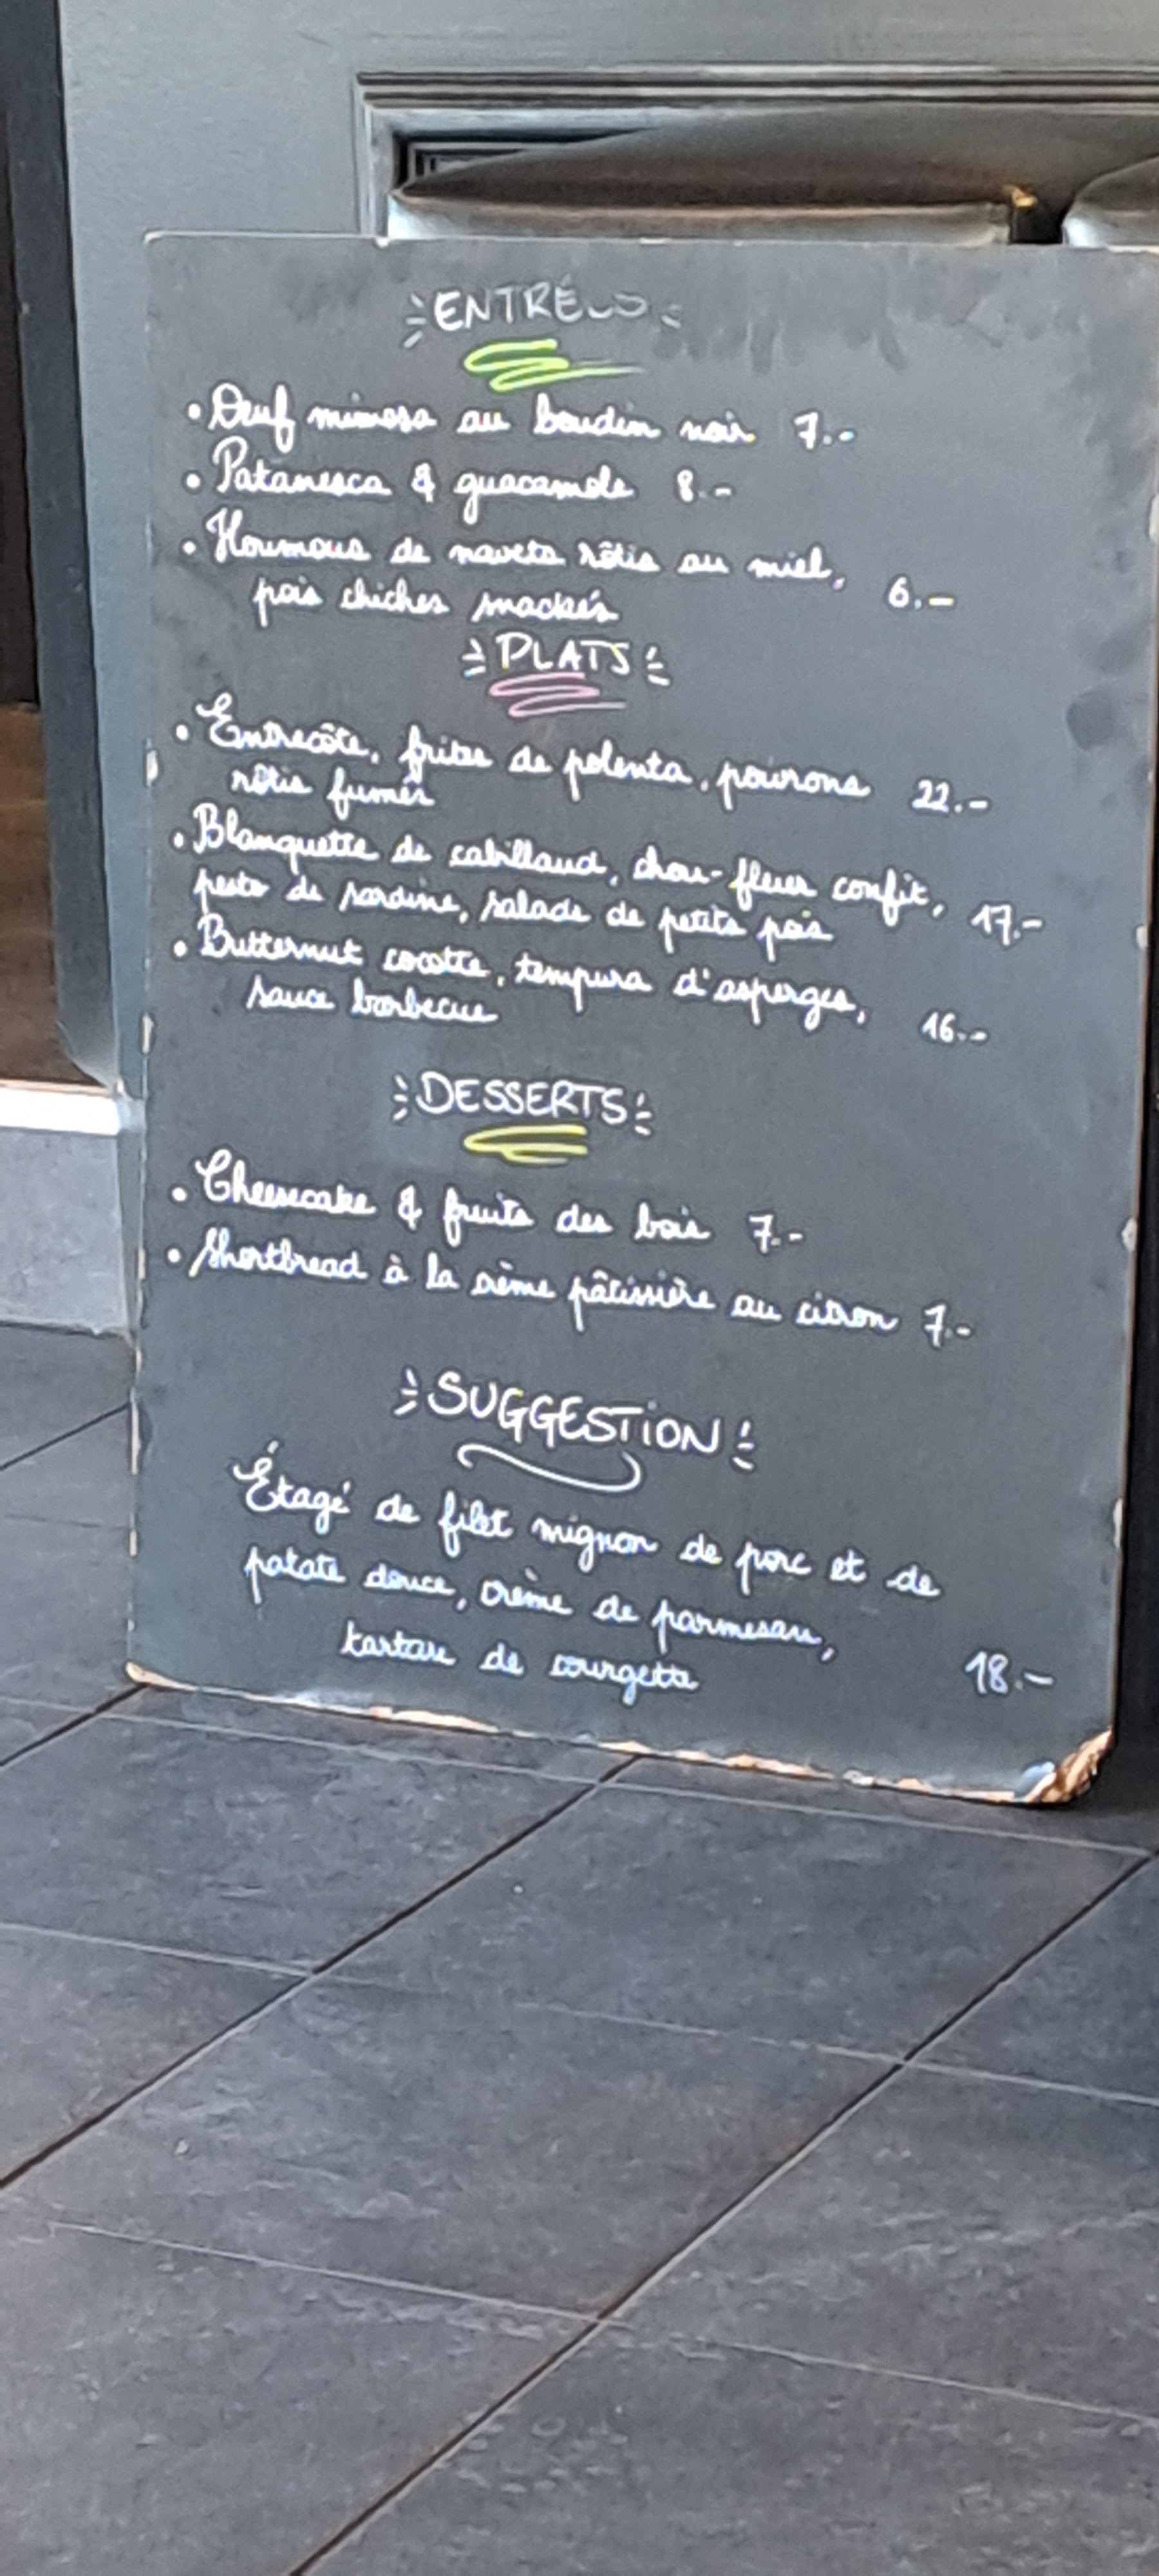 ENTRÉES
• Oeuf mimosa au boudin noir 7.-
• Patanesca & guacamole 8.-
• Houmous de navets rôtis au miel, 6.-
pois chiches snackés
PLATS
• Entrecôte, frites de polenta, poivrons 22.-
rôtis fumés
• Blanquette de cabillaud, chou-fleur confit, 17.-
pesto de sardine, salade de petits pois
• Butternut cocotte, tempura d'asperges, 16.-
sauce barbecue
DESSERTS
• Cheesecake & fruits des bois 7.-
• Shortbread à la crème pâtissière au citron 7.-
SUGGESTION
Étagé de filet mignon de porc et de
patate douce, crème de parmesan,
tartare de courgette 18.-